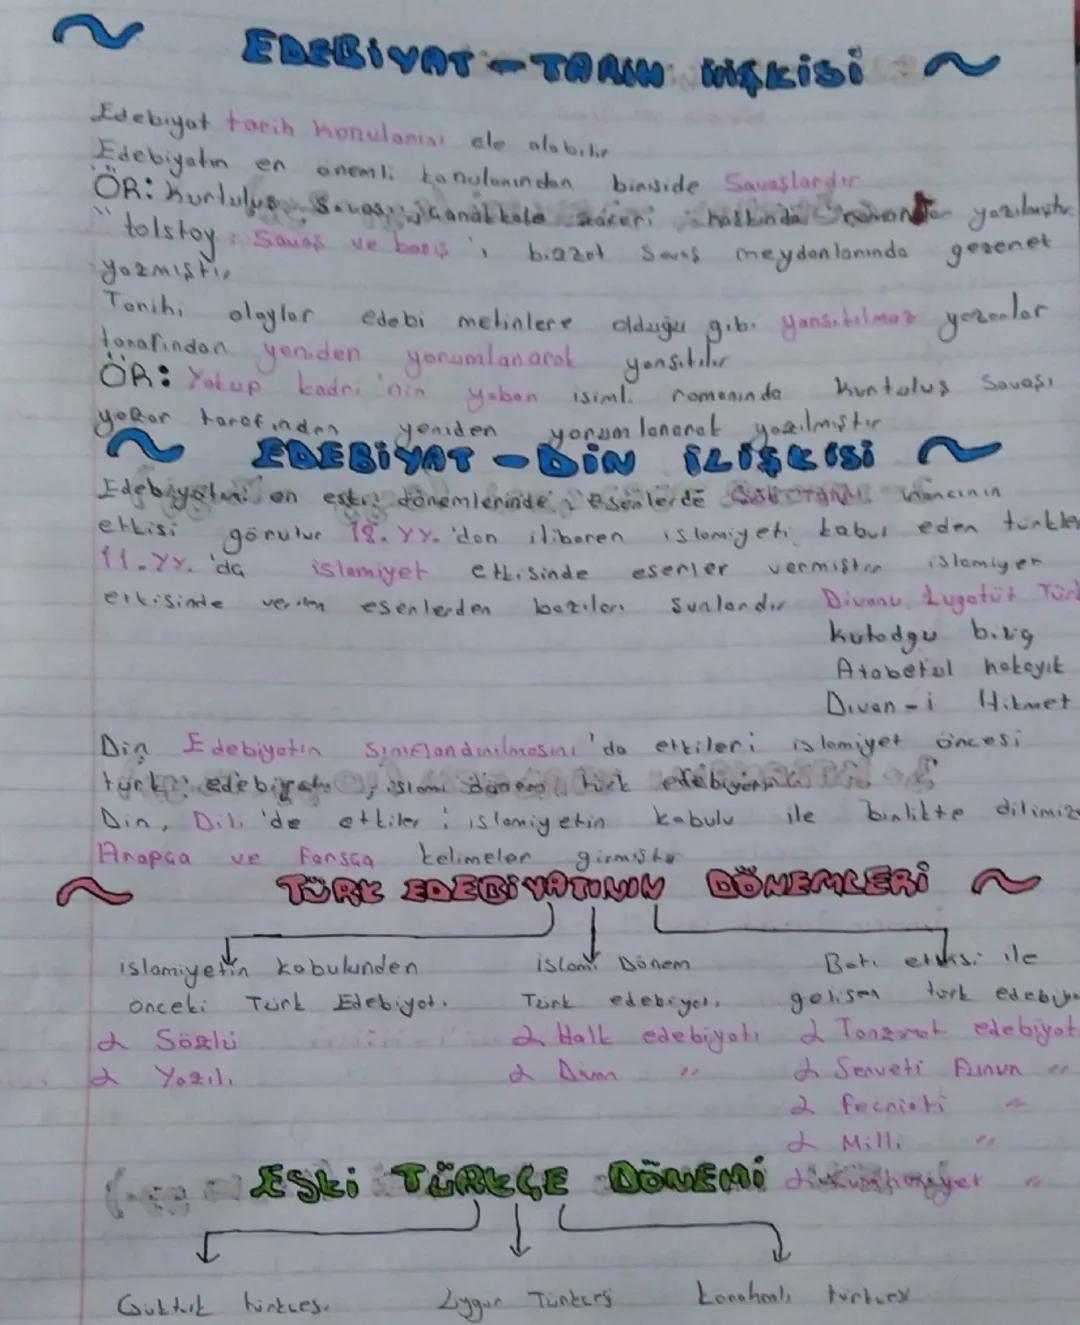 EDEBİYAT-TARİH İLİŞKİSİ
Edebiyat tarih konularını ele alabilir
Edebiyatın en önemli konularından biriside Savaşlardır
ÖR: Kurtuluş Savaşı, Çanakkale zaferi hakkında yazılmıştır
"tolstoy: Savaş ve barış", bizzat savaş meydanlarında gezerek
yazmıştır
Tarihi olaylar edebi metinlere olduğu gibi yansıtılmaz yazarlar
tarafından yeniden yorumlanarak yansıtılır
ÖR: Yakup kadri'nin yaban isimli romanında Kurtuluş Savaşı
yazar tarafından yeniden yorumlanarak yazılmıştır
EDEBİYAT-DİN İLİŞKİSİ
Edebiyatın en eski dönemlerinde eserlerde Gök Tanrı inancının
etkisi görülür 18.YY.'dan itibaren islamiyeti kabul eden türkler
11.YY.'da islamiyet etkisinde eserler vermiştir islamiyet
etkisinde verilen eserlerden bazıları şunlardır Divanu Lugatüt Türk
Kutadgu bilig
Atabetül hakayık
Divan-i Hikmet
Din Edebiyatın Sınıflandırılmasını'da etkiler: islamiyet öncesi
türk edebiyatı, islami dönem türk edebiyatı
Din, Dili'de etkiler: islamiyetin kabulu ile birlikte dilimize
Arapça ve Farsça kelimeler girmiştir
TÜRK EDEBİYATININ DÖNEMLERİ
islamiyetin kabulunden islami Dönem Batı etkisi ile
önceki Türk Edebiyatı Türk edebiyatı gelişen türk edebiyatı
Sözlü Halk edebiyatı Tanzimat edebiyatı
Yazılı Divan " Serveti Fünun "
Fecriati "
Milli "
Cumhuriyet "
ESKİ TÜRKÇE DÖNEMİ
Göktürk türkçesi Uygur Türkçesi karahanlı türkçesi